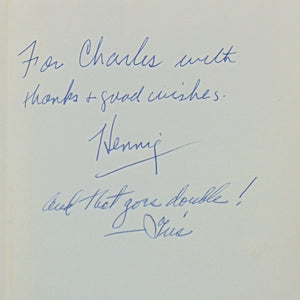 For Charles with
thanks & good wishes.
Hennig
and that goes double!
—Iris